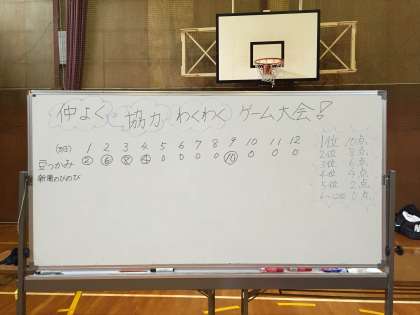 仲よく 協力 わくわく ゲーム大会!
(班) 1 2 3 4 5 6 7 8 9 10 11 12
豆つかみ ② ⑥ ⑧ ④ 0 0 0 0 ⑩ 0 0 0
新聞のびのび
1位 10点
2位 8点
3位 6点
4位 4点
5位 2点
6~12位 0点